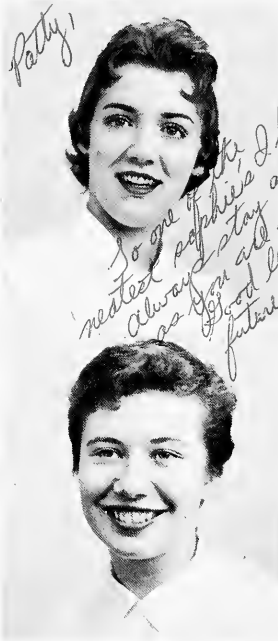 Patty,
To one of the
neatest sophie's I
Always stay a
as you are
Good l
future